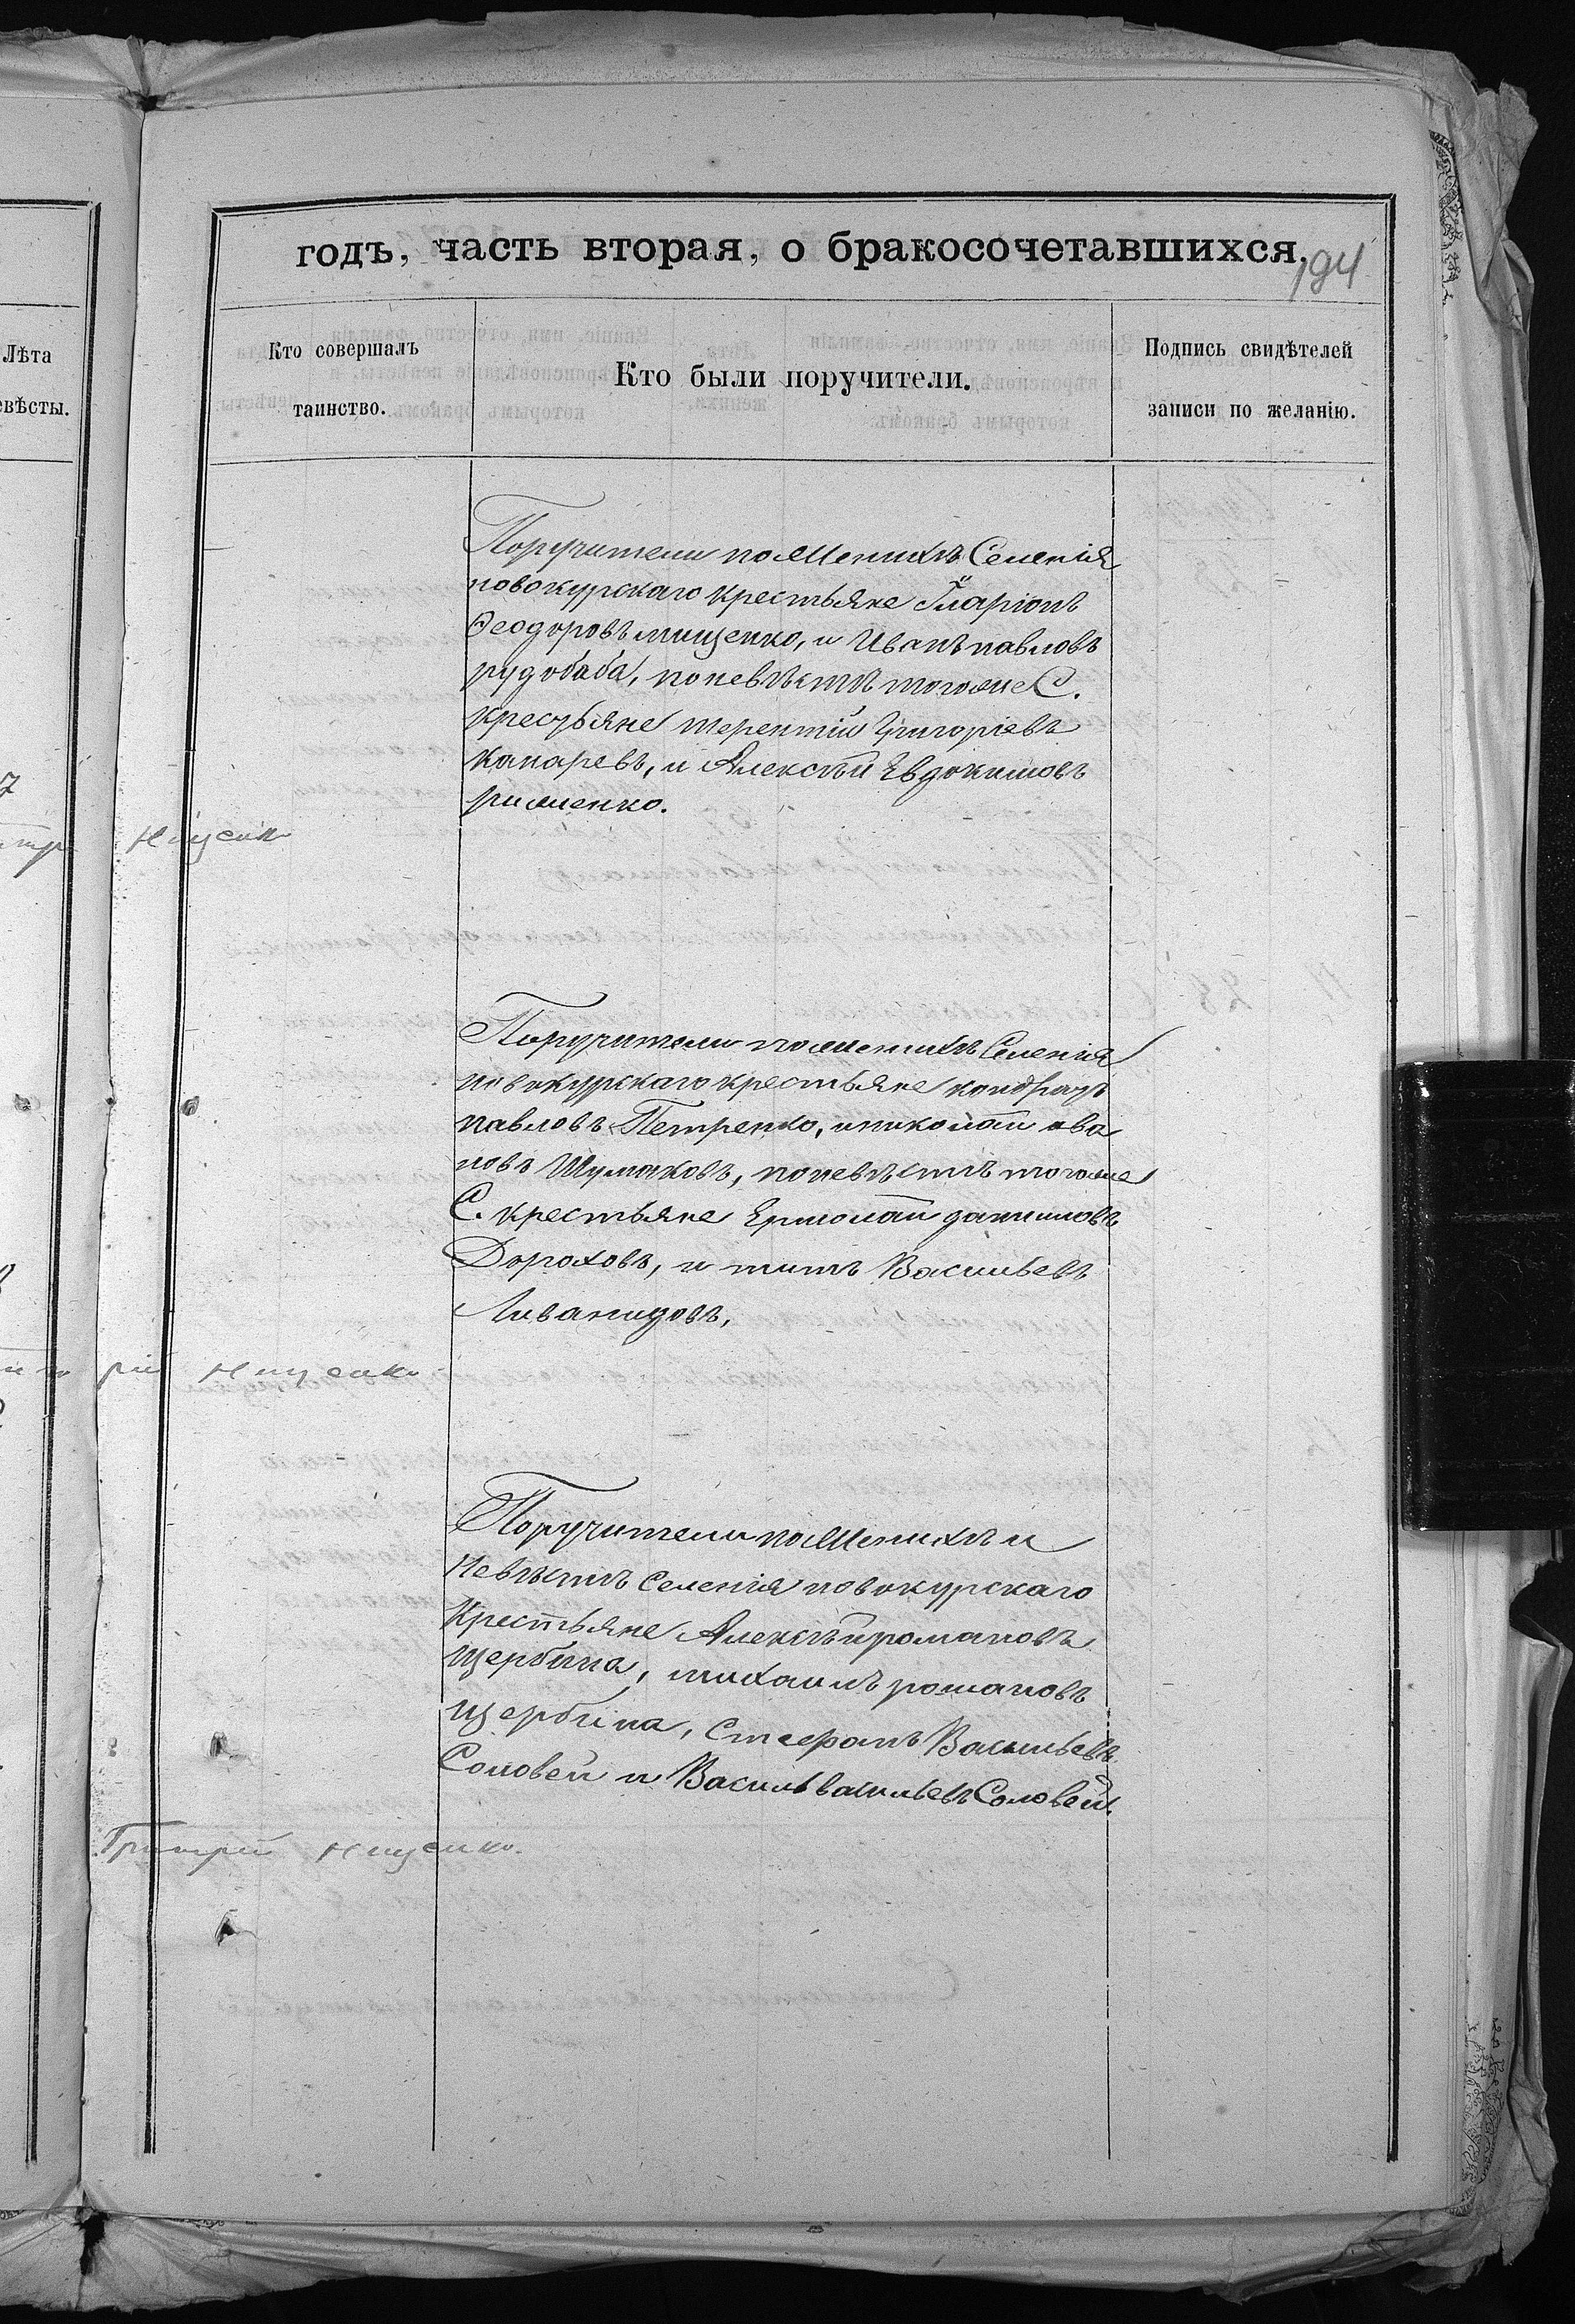 годъ, часть вторая, о бракосочетавшихся.
194
Лѣта
евѣсты.
Кто совершалъ
таинство.
Кто были поручители.
Подпись свидѣтелей
записи по желанію.
Поручители по Женихѣ Селенія
новокурскаго крестьяне Іларіонъ
Ѳеодоровъ мищенко, и Иванъ павловъ
рудобаба, по невѣстѣ тогоже С.
крестьяне терентій Григоріевъ
канаревъ, и Алексѣй Евдокимовъ
рименко.
Поручители по женихѣ Селенія
новокурскаго крестьяне кондратъ
павловъ Петренко, и николай ива
новъ Шумаковъ, по невѣстѣ тогоже
С. крестьяне Ермолай даниловъ
Дороховъ, и титъ Васильевъ
Ливанидовъ,
Поручители по Женихѣ и
Невѣстѣ Селенія новокурскаго
Крестьяне Алексѣй романовъ
щербина, михаилъ романовъ
щербина, Стефанъ Васильевъ
Соловей и Василь васильевъ Соловей.
Григорій Нищенко.